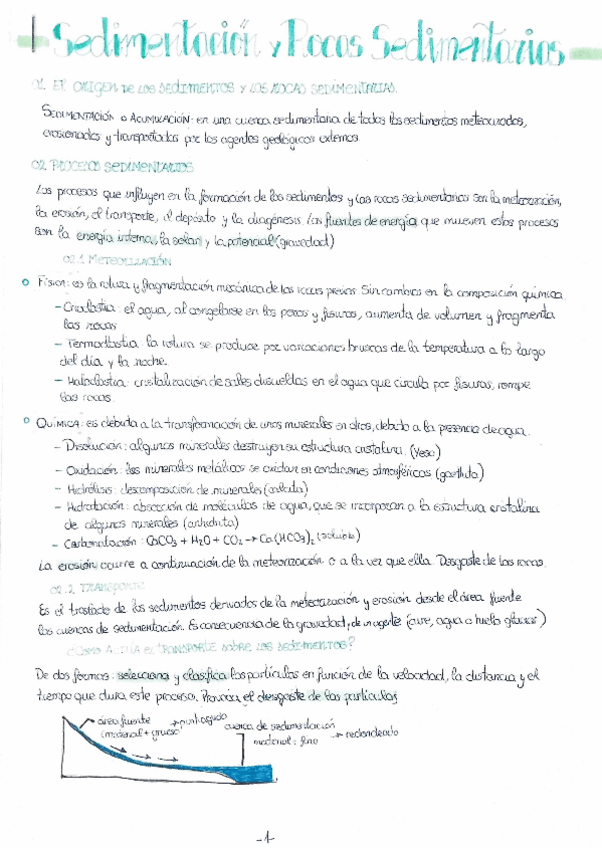 Sedimentación y Rocas Sedimentarias
01. El ORIGEN DE LOS SEDIMENTOS Y LAS ROCAS SEDIMENTARIAS.
SEDIMENTACIÓN O ACUMULACIÓN: en una cuenca sedimentaria de todos los sedimentos meteorizados,
erosionados y transportados por los agentes geológicos externos.
02. PROCESOS SEDIMENTARIOS
Los procesos que influyen en la formación de los sedimentos y las rocas sedimentarias son la meteorización,
la erosión, el transporte, el depósito y la diagénesis. Las fuentes de energía que mueven estos procesos
son la energía interna, la solar y la potencial (gravedad)
02.1 METEORIZACIÓN
FÍSICA: es la rotura y fragmentación mecánica de las rocas previas. Sin cambios en la composición química
- Crioclastia: el agua, al congelarse en los poros y fisuras, aumenta de volumen y fragmenta
las rocas
- Termoclastia: la rotura se produce por variaciones bruscas de la temperatura a lo largo
del día y la noche.
- Haloclastia: cristalización de sales disueltas en el agua que circula por fisuras, rompe
las rocas.
QUÍMICA: es debida a la transformación de unos minerales en otros, debido a la presencia de agua.
- Disolución: algunos minerales destruyen su estructura cristalina. (Yeso)
- Oxidación: los minerales metálicos se oxidan en condiciones atmosféricas (goethita)
- Hidrólisis: descomposición de minerales (calcita)
- Hidratación: absorción de moléculas de agua, que se incorporan a la estructura cristalina
de algunos minerales (anhidrita)
- Carbonatación: CaCO3 + H2O + CO2 → Ca(HCO3)2 (soluble)
La erosión ocurre a continuación de la meteorización o a la vez que ella. Desgaste de las rocas.
02.2. TRANSPORTE
Es el traslado de los sedimentos derivados de la meteorización y erosión desde el área fuente
las cuencas de sedimentación. Es consecuencia de la gravedad, de un agente (aire, agua o hielo glaciar)
¿CÓMO ACTÚA el TRANSPORTE SOBRE LOS SEDIMENTOS?
De dos formas: selecciona y clasifica las partículas en función de la velocidad, la distancia y el
tiempo que dura este proceso. Provoca el desgaste de las partículas
área fuente → puntiagudo
(material + grueso)
cuenca de sedimentación
material: fino → redondeado
-1-